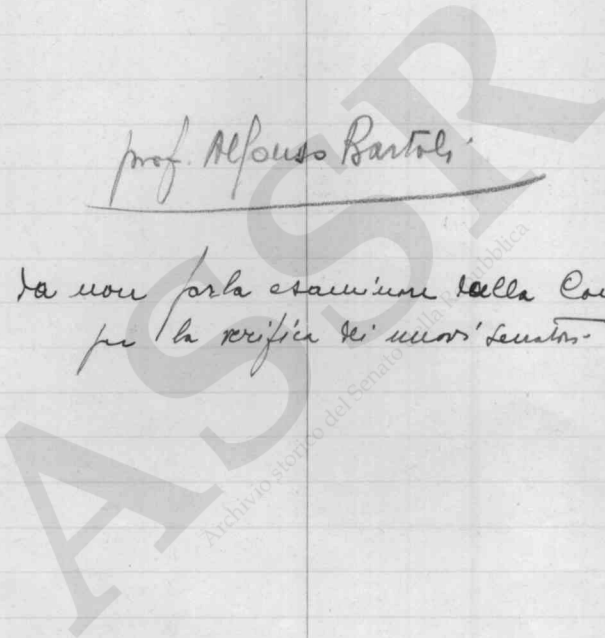 prof. Alfonso Bartoli
da non farla esaminare dalla Com
per la verifica dei nuovi senatori
ASSR
Archivio storico del Senato della Repubblica